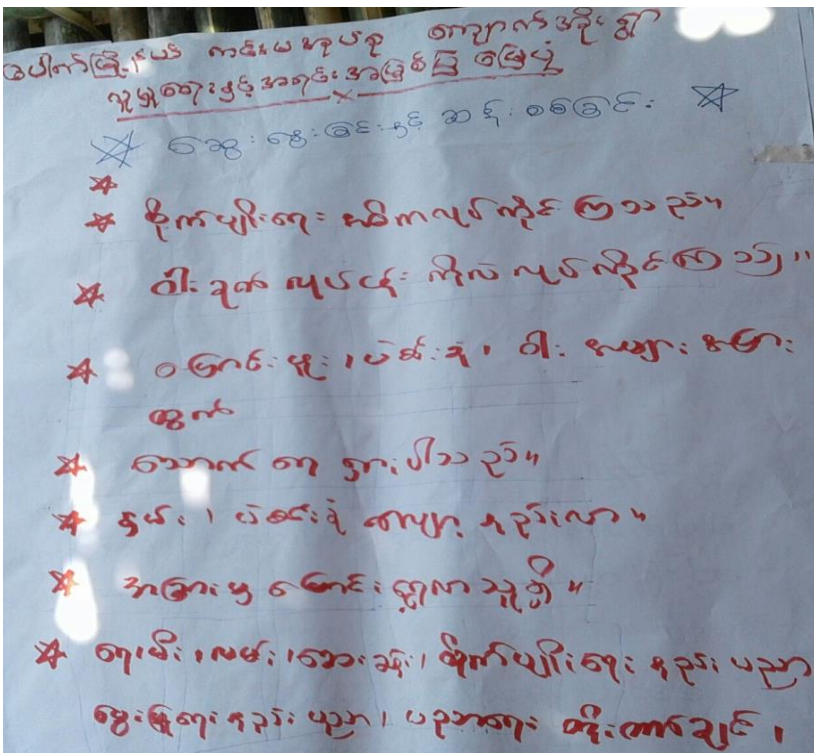 ပေါက်မြို့နယ် ကင်းမအုပ်စု ကျောက်အိုးရွာ
လူမှုရေးနှင့်အရင်းအမြစ်ပြမြေပုံ
ဆွေးနွေးခြင်းနှင့် ဆန်းစစ်ခြင်း
စိုက်ပျိုးရေး အဓိကလုပ်ကိုင်ကြသည်။
ဝါးခုတ်လုပ်ငန်းကိုလဲ လုပ်ကိုင်ကြသည်။
၊ ပဲစဉ်းငုံ၊ ဝါး
ထွက်
သောက်ရေ ရှားပါသည်။
နှမ်း၊ ပဲစဉ်းငုံ လျော့နည်းလာ။
အခြားမှ ပြောင်းရွှေ့လာသူရှိ။
ရေ၊ မီး၊ လမ်း၊ ဆေးခန်း၊ စိုက်ပျိုးရေးနည်းပညာ
မွေးမြူရေးနည်းပညာ၊ ပညာရေး တိုးတက်ချင်၊